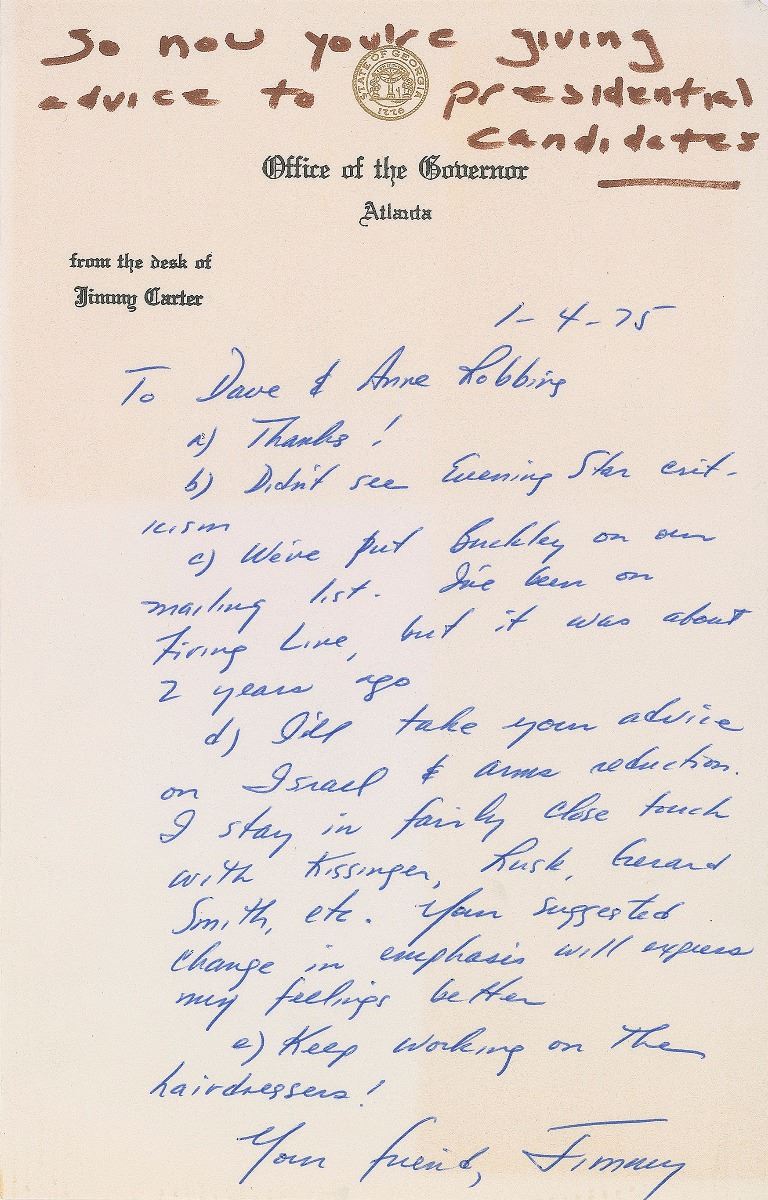 So now you're giving
advice to presidential
candidates
STATE OF GEORGIA
1776
Office of the Governor
Atlanta
from the desk of
Jimmy Carter
1-4-75
To Dave & Anne Robbins
a) Thanks!
b) Didn't see Evening Star crit-
icism
c) We've put Buckley on our
mailing list. I've been on
Firing Line, but it was about
2 years ago
d) I'll take your advice
on Israel & arms reduction.
I stay in fairly close touch
with Kissinger, Rusk, Gerard
Smith, etc. Your suggested
change in emphasis will express
my feelings better
e) Keep working on the
hairdressers!
Your friend, Jimmy